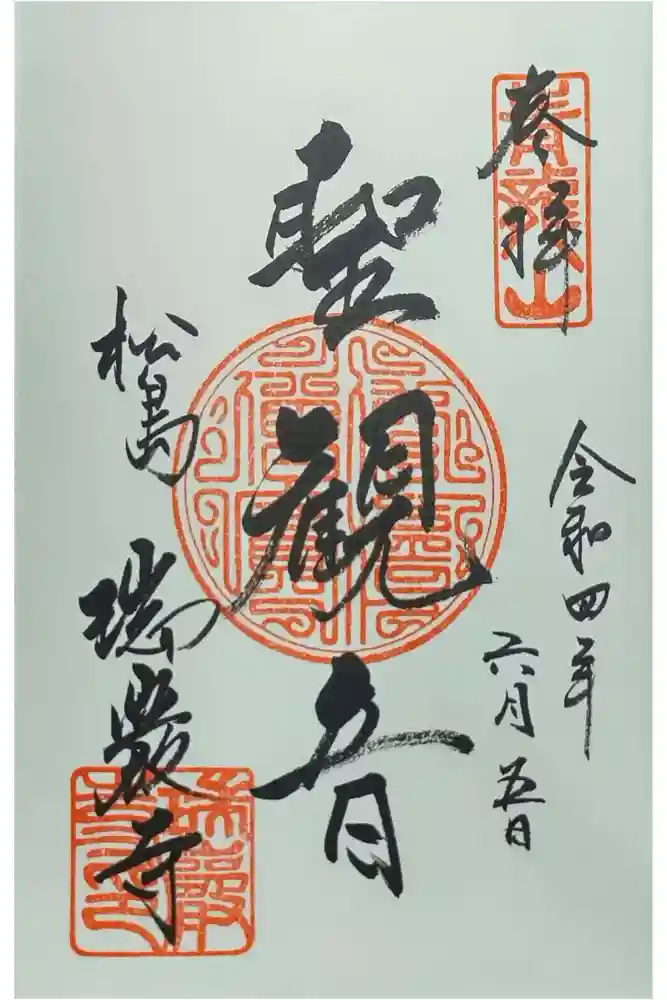 奉拝
青龍山
令和四年
六月五日
聖観音
松島
瑞巌寺